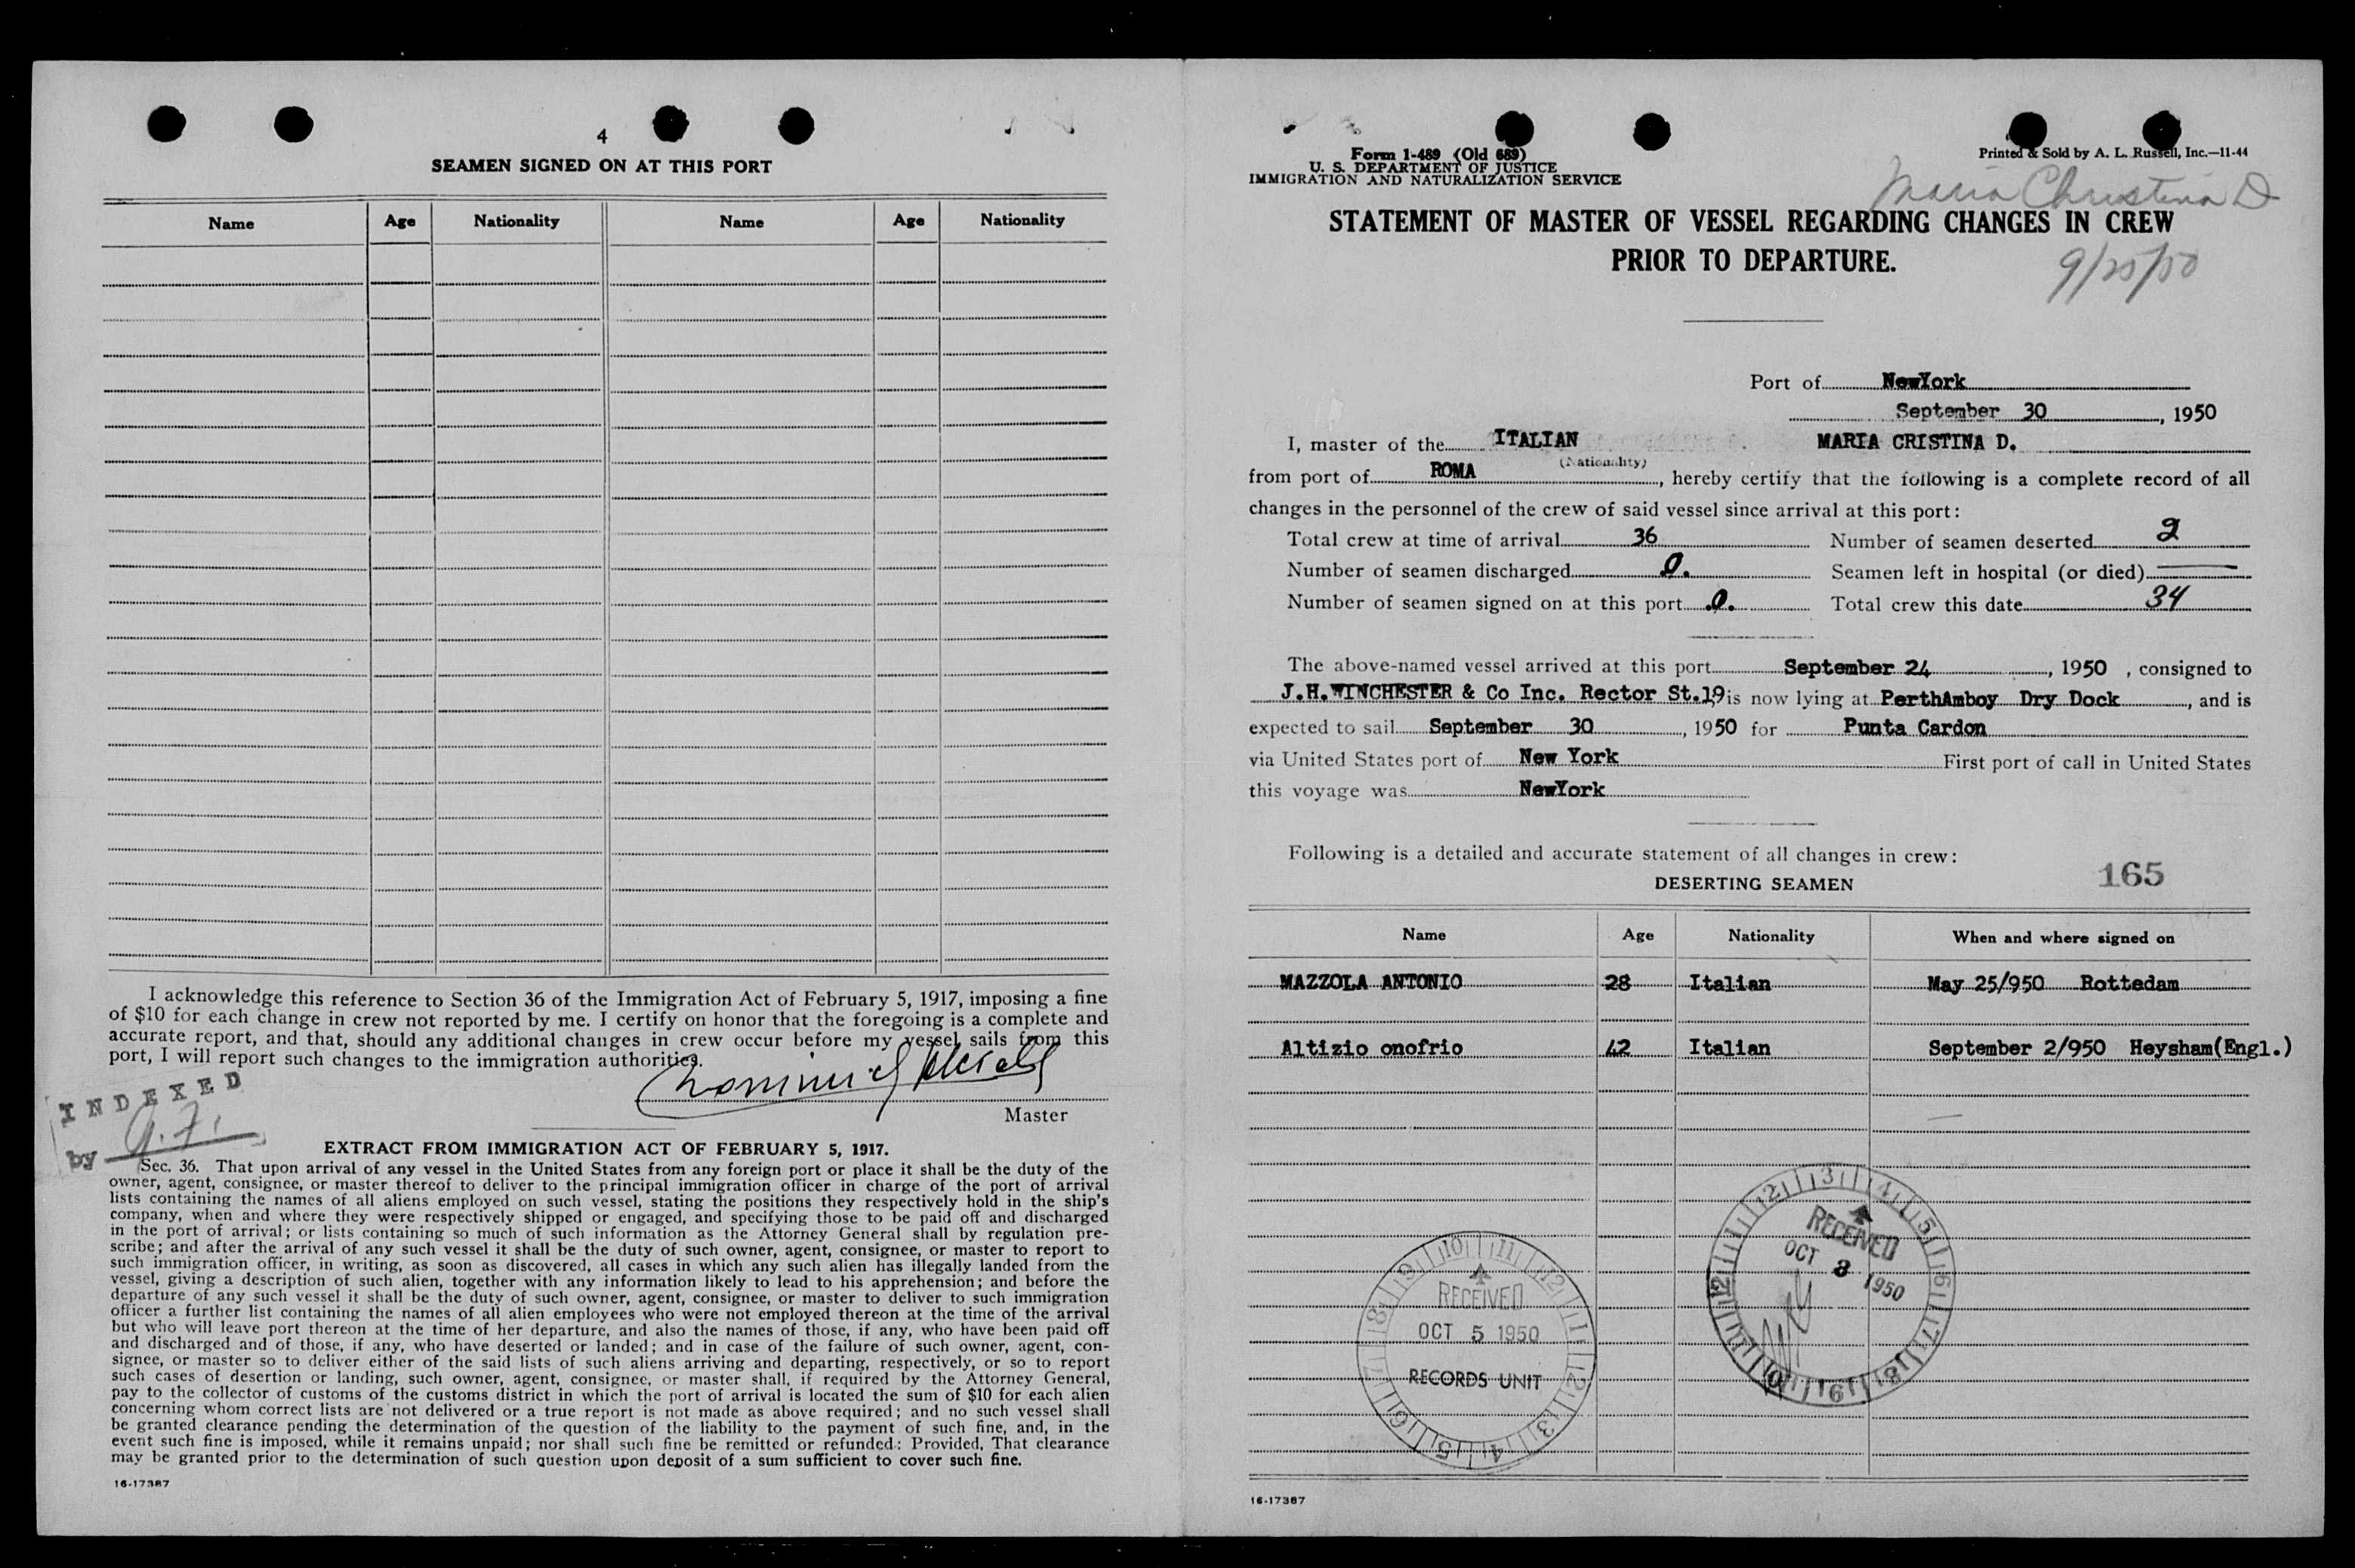 4
SEAMEN SIGNED ON AT THIS PORT
Name Age Nationality Name Age Nationality
I acknowledge this reference to Section 36 of the Immigration Act of February 5, 1917, imposing a fine
of $10 for each change in crew not reported by me. I certify on honor that the foregoing is a complete and
accurate report, and that, should any additional changes in crew occur before my vessel sails from this
port, I will report such changes to the immigration authorities.
Master
INDEXED
by
EXTRACT FROM IMMIGRATION ACT OF FEBRUARY 5, 1917.
Sec. 36. That upon arrival of any vessel in the United States from any foreign port or place it shall be the duty of the
owner, agent, consignee, or master thereof to deliver to the principal immigration officer in charge of the port of arrival
lists containing the names of all aliens employed on such vessel, stating the positions they respectively hold in the ship's
company, when and where they were respectively shipped or engaged, and specifying those to be paid off and discharged
in the port of arrival; or lists containing so much of such information as the Attorney General shall by regulation pre-
scribe; and after the arrival of any such vessel it shall be the duty of such owner, agent, consignee, or master to report to
such immigration officer, in writing, as soon as discovered, all cases in which any such alien has illegally landed from the
vessel, giving a description of such alien, together with any information likely to lead to his apprehension; and before the
departure of any such vessel it shall be the duty of such owner, agent, consignee, or master to deliver to such immigration
officer a further list containing the names of all alien employees who were not employed thereon at the time of the arrival
but who will leave port thereon at the time of her departure, and also the names of those, if any, who have been paid off
and discharged and of those, if any, who have deserted or landed; and in case of the failure of such owner, agent, con-
signee, or master so to deliver either of the said lists of such aliens arriving and departing, respectively, or so to report
such cases of desertion or landing, such owner, agent, consignee, or master shall, if required by the Attorney General,
pay to the collector of customs of the customs district in which the port of arrival is located the sum of $10 for each alien
concerning whom correct lists are not delivered or a true report is not made as above required; and no such vessel shall
be granted clearance pending the determination of the question of the liability to the payment of such fine, and, in the
event such fine is imposed, while it remains unpaid; nor shall such fine be remitted or refunded: Provided, That clearance
may be granted prior to the determination of such question upon deposit of a sum sufficient to cover such fine.
16-17387
Form 1-489 (Old 689)
U. S. DEPARTMENT OF JUSTICE
IMMIGRATION AND NATURALIZATION SERVICE
Printed & Sold by A. L. Russell, Inc.—11-44
Maria Christina D
STATEMENT OF MASTER OF VESSEL REGARDING CHANGES IN CREW
PRIOR TO DEPARTURE.
9/25/50
Port of NewYork
September 30, 1950
I, master of the ITALIAN MARIA CRISTINA D.
(Nationality)
from port of ROMA, hereby certify that the following is a complete record of all
changes in the personnel of the crew of said vessel since arrival at this port:
Total crew at time of arrival 36 Number of seamen deserted 2
Number of seamen discharged 0. Seamen left in hospital (or died) —
Number of seamen signed on at this port 0. Total crew this date 34
The above-named vessel arrived at this port September 24, 1950, consigned to
J.H.WINCHESTER & Co Inc. Rector St.19 is now lying at PerthAmboy Dry Dock, and is
expected to sail September 30, 1950 for Punta Cardon
via United States port of New York First port of call in United States
this voyage was NewYork
Following is a detailed and accurate statement of all changes in crew:
165
DESERTING SEAMEN
Name Age Nationality When and where signed on
MAZZOLA ANTONIO 28 Italian May 25/950 Rottedam
Altizio onofrio 42 Italian September 2/950 Heysham(Engl.)
RECEIVED
OCT 3 1950
RECEIVED
OCT 5 1950
RECORDS UNIT
16-17387